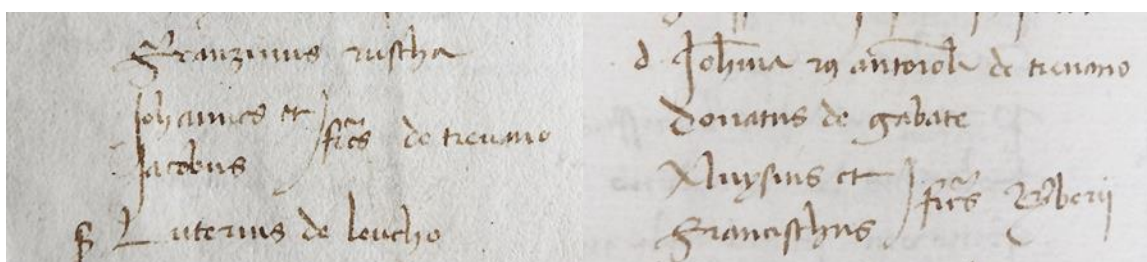 Franzinus ruscha
Johannes et
Jacobus
fres de trevano
Luterius de leucho
d Johina antoniola de trevano
Donatus de gabate
Aluysius et
Francischus
fres Roberij